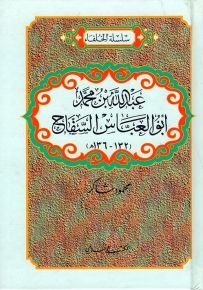 سلسلة الخلفاء
عبد الله بن محمد
أبو العباس السفاح
(١٣٢-١٣٦هـ)
محمود شاكر